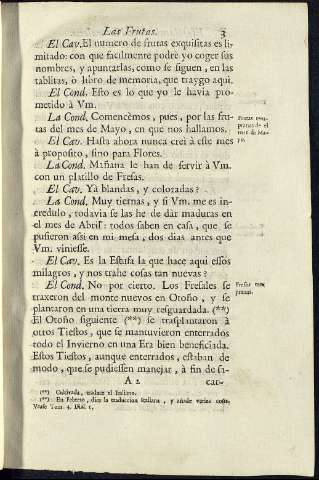 Las Frutas. 3
El Cav. El numero de frutas exquisitas es li-
mitado: con que facilmente podrè yo coger sus
nombres, y apuntarlas, como se siguen, en las
tablitas, ò libro de memoria, que traygo aqui.
El Cond. Esto es lo que yo le havia pro-
metido à Vm.
La Cond. Comencèmos, pues, por las fru-
tas del mes de Mayo, en que nos hallamos.
El Cav. Hasta ahora nunca crei à este mes
à proposito, sino para Flores.
La Cond. Mañana le han de servir à Vm.
con un platillo de Fresas.
El Cav. Yà blandas, y coloradas?
La Cond. Muy tiernas, y si Vm. me es in-
credulo, todavia se las he de dàr maduras en
el mes de Abril: todos saben en casa, que se
pusieron assi en mi mesa, dos dias antes que
Vm. viniesse.
El Cav. Es la Estufa la que hace aqui essos
milagros, y nos trahe cosas tan nuevas?
El Cond. No por cierto. Los Fresales se
traxeron del monte nuevos en Otoño, y se
plantaron en una tierra muy resguardada. (**)
El Otoño siguiente (**) se trasplantaron à
otros Tiestos, que se mantuvieron enterrados
todo el Invierno en una Era bien beneficiada.
Estos Tiestos, aunque enterrados, estaban de
modo, que se pudiessen manejar, à fin de sa-
A 2 car-
(**) Cultivada, traduce el Italiano.
(**) En Febrero, dice la traduccion Italiana, y añade varias cosas.
Vease Tom. 4. Dial. 1.
Frutas tem-
pranas de el
mes de Ma-
yo.
Fresas tem-
pranas.